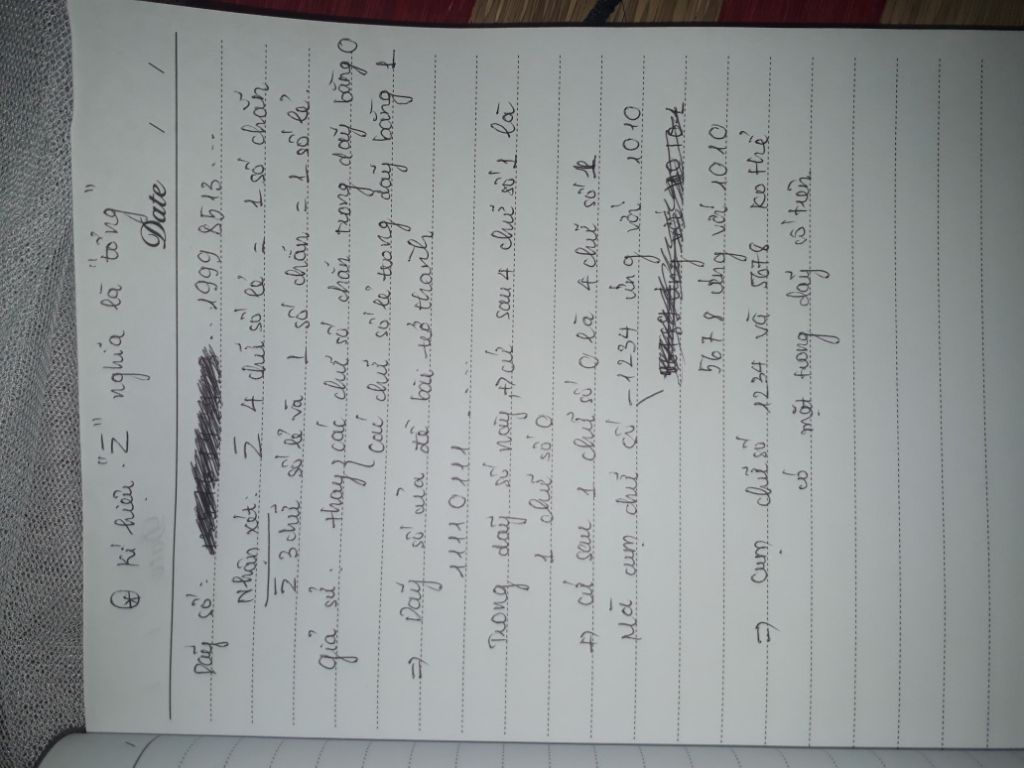 ⊕ Kí hiệu "Σ" nghĩa là "tổng"
Date / /
Dãy số: ... 1999 8513....
Nhận xét: Σ 4 chữ số lẻ = 1 số chẵn
Σ 3 chữ số lẻ và 1 số chẵn = 1 số lẻ
Giả sử: thay các chữ số chẵn trong dãy bằng 0
các chữ số lẻ trong dãy bằng 1
=> Dãy số của đề bài trở thành
1111 0111.....
Trong dãy số này, cứ sau 4 chữ số 1 là
1 chữ số 0
cứ sau 1 chữ số 0 là 4 chữ số 1
Mà cụm chữ số - 1234 ứng với 1010
5678 ứng với 1010
=> Cụm chữ số 1224 và 5678 ko thể
có mặt trong dãy số trên